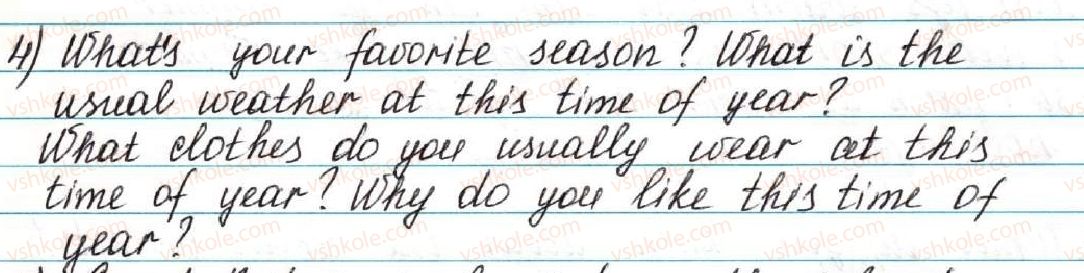 4) What's your favorite season? What is the
usual weather at this time of year?
What clothes do you usually wear at this
time of year? Why do you like this time of
year?